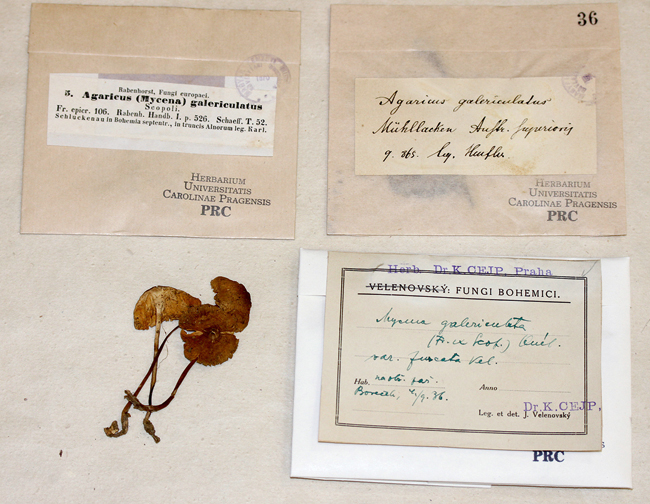 Rabenhorst, Fungi europaei.
5. Agaricus (Mycena) galericulatus
Scopoli.
Fr. epicr. 106. Rabenh. Handb. I. p. 526. Schaeff. T. 52.
Schluckenau in Bohemia septentr., in truncis Alnorum leg. Karl.
HERBARIUM
UNIVERSITATIS
CAROLINAE PRAGENSIS
PRC
36
Agaricus galericulatus
Mühllacken Austr. superioris
9. 865. leg. Heufler
HERBARIUM
UNIVERSITATIS
CAROLINAE PRAGENSIS
PRC
Herb. Dr.K.CEJP, Praha
VELENOVSKÝ: FUNGI BOHEMICI.
Mycena galericulata
(Fr. ex Scop.) Quél.
var. furcata Vel.
Hab. Anno
Dr.K.CEJP,
Leg. et det. J. Velenovský
PRC